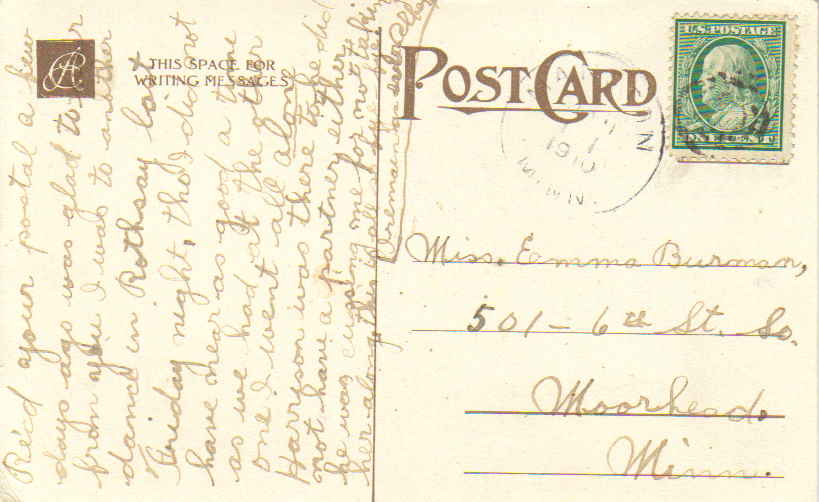 THIS SPACE FOR
WRITING MESSAGES
POST CARD
U.S. POSTAGE
ONE CENT
1910
MINN
Rec'd your postal a few
days ago was glad to hear
from you I was to another
dance in Rothsay last
Friday night, tho I did not
have near as good a time
as we had at the other
one I went all alone
Harryson was there to he did
not have a partner either
he was cussing me for not taking
her along this is all
I remain
Miss. Emma Burman,
501 - 6th St. So.
Moorhead.
Minn.